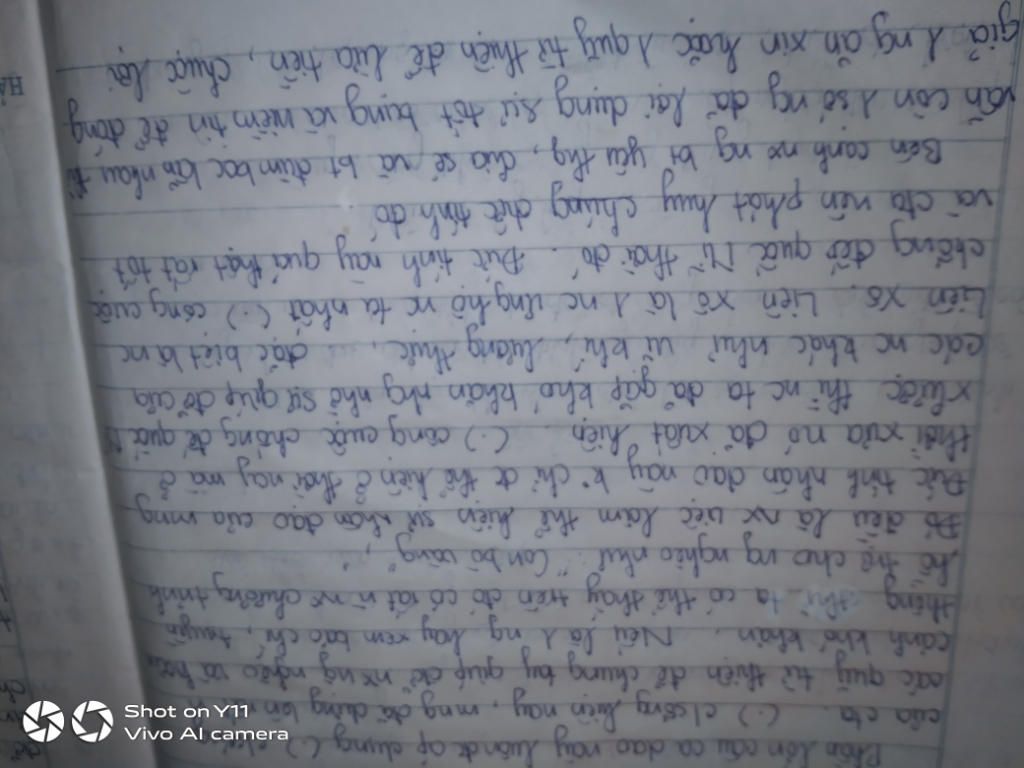 Phần lớn câu ca dao này luôn đc áp dụng (.)
của cta. (.) c/sống hiện nay, mng đã dựng lên
các quỹ từ thiện để chung tay giúp đỡ nx ng nghèo và hoàn
cảnh khó khăn. Nếu là 1 ng hay xem báo chí, truyền
thông thì ta có thể thấy trên đó có rất n` nx chương trình
hỗ trợ cho ng nghèo như "Con bò vàng",
Đó đều là nx việc làm thể hiện sự nhân đạo của mng
Đức tính nhân đạo này k chỉ đc thể hiện ở thời nay mà ở
thời xưa nó đã xuất hiện. (.) công cuộc chống đế quốc
xlược thì nc ta đã gặp khó khăn nhg nhờ sự giúp đỡ của
các nc khác như vũ khí, lương thực,... đặc biệt là nc
Liên Xô. Liên Xô là 1 nc ủng hộ nc ta nhất (.) công cuộc
chống đế quốc Mĩ thời đó. Đức tính này quả thật rất tốt
và cta nên phát huy chúng đức tính đó.
Bên cạnh nx ng bt yêu thg, chia sẻ và bt đùm bọc lẫn nhau thì
vẫn còn 1 số ng đã lợi dụng sự tốt bụng và niềm tin để đóng
giả 1 ng ăn xin hoặc 1 quỹ từ thiện để lừa tiền, chuộc lợi
Shot on Y11
Vivo AI camera